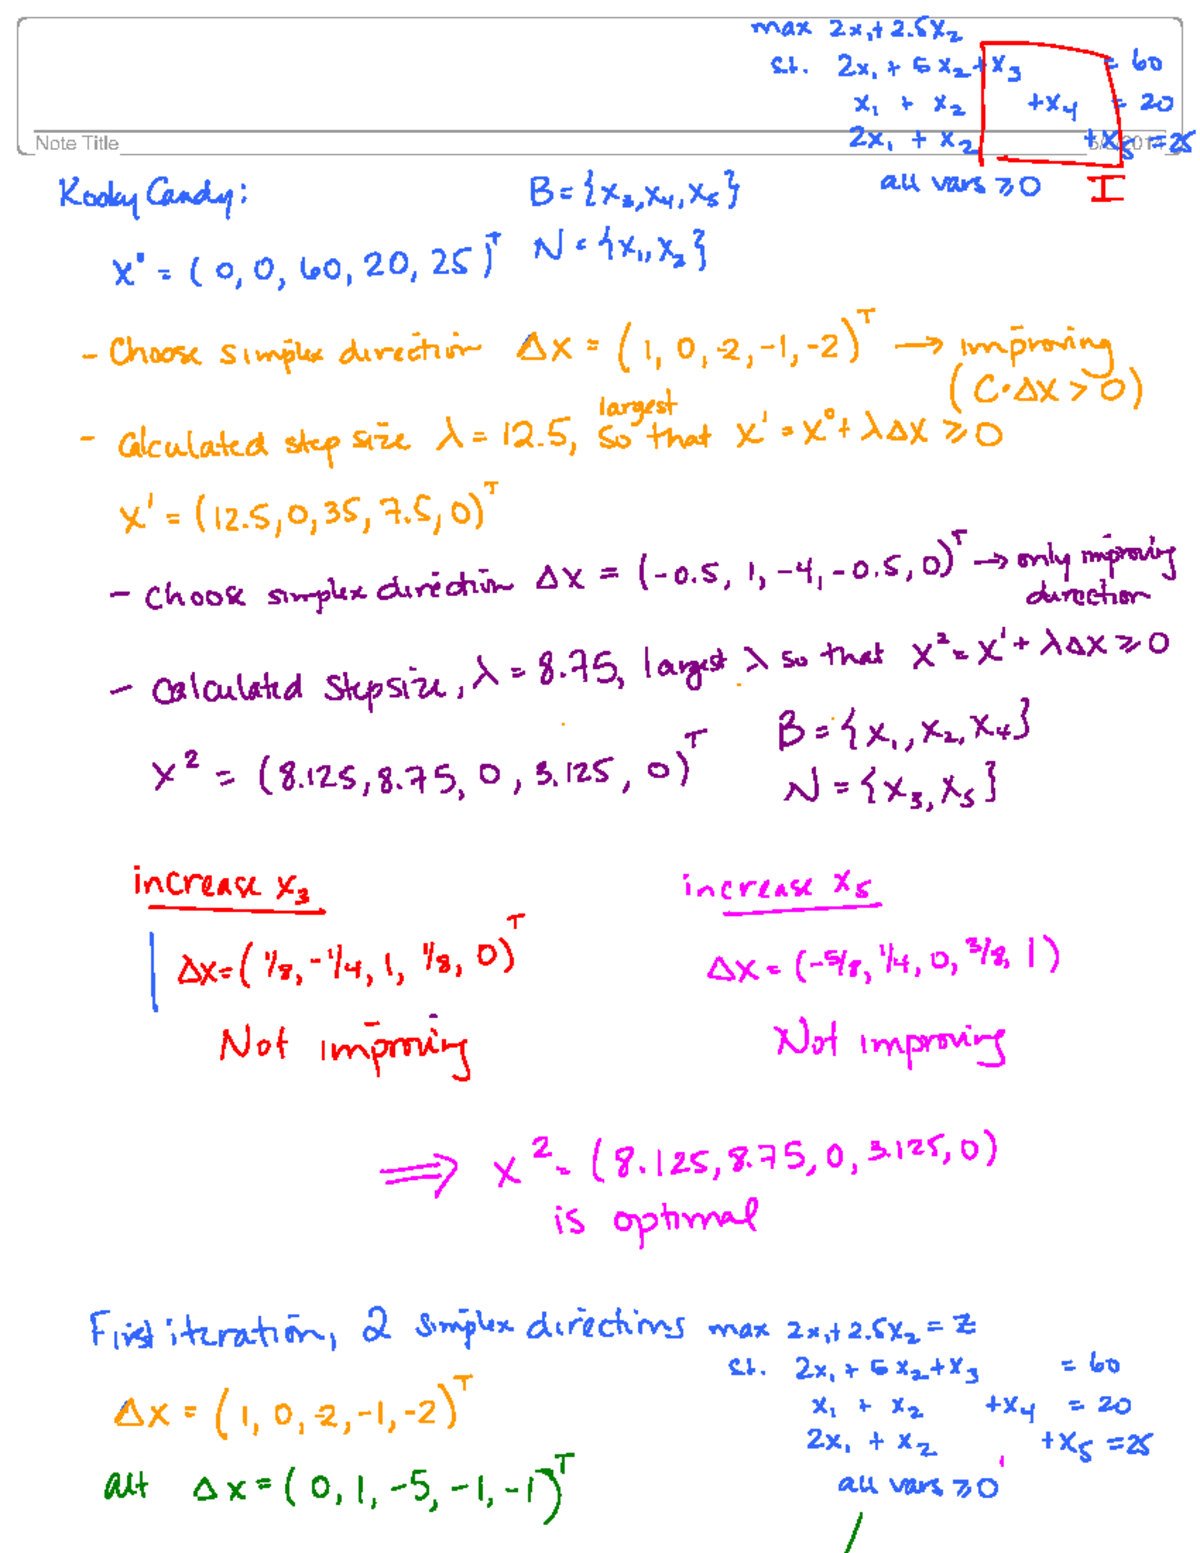 max 2x₁+2.5x₂
s.t. 2x₁ + 5x₂ + x₃ = 60
x₁ + x₂ +x₄ = 20
2x₁ + x₂ +x₅ = 25
Note Title
all vars ≥ 0 I
Kooky Candy: B = {x₃, x₄, x₅}
N = {x₁, x₂}
x⁰ = (0, 0, 60, 20, 25)ᵀ
- Choose simplex direction Δx = (1, 0, -2, -1, -2)ᵀ → improving
(C·Δx > 0)
- Calculated step size λ = 12.5, largest so that x¹ = x⁰ + λΔx ≥ 0
x¹ = (12.5, 0, 35, 7.5, 0)ᵀ
- Choose simplex direction Δx = (-0.5, 1, -4, -0.5, 0)ᵀ → only improving
direction
- Calculated stepsize, λ = 8.75, largest λ so that x² = x¹ + λΔx ≥ 0
B = {x₁, x₂, x₄}
x² = (8.125, 8.75, 0, 3.125, 0)ᵀ
N = {x₃, x₅}
increase x₃
Δx = (1/8, -1/4, 1, 1/8, 0)ᵀ
Not improving
increase x₅
Δx = (-5/8, 1/4, 0, 3/8, 1)
Not improving
⟹ x² = (8.125, 8.75, 0, 3.125, 0)
is optimal
First iteration, 2 simplex directions
Δx = (1, 0, -2, -1, -2)ᵀ
alt Δx = (0, 1, -5, -1, -1)ᵀ
max 2x₁+2.5x₂ = z
s.t. 2x₁ + 5x₂ + x₃ = 60
x₁ + x₂ +x₄ = 20
2x₁ + x₂ +x₅ = 25
all vars ≥ 0